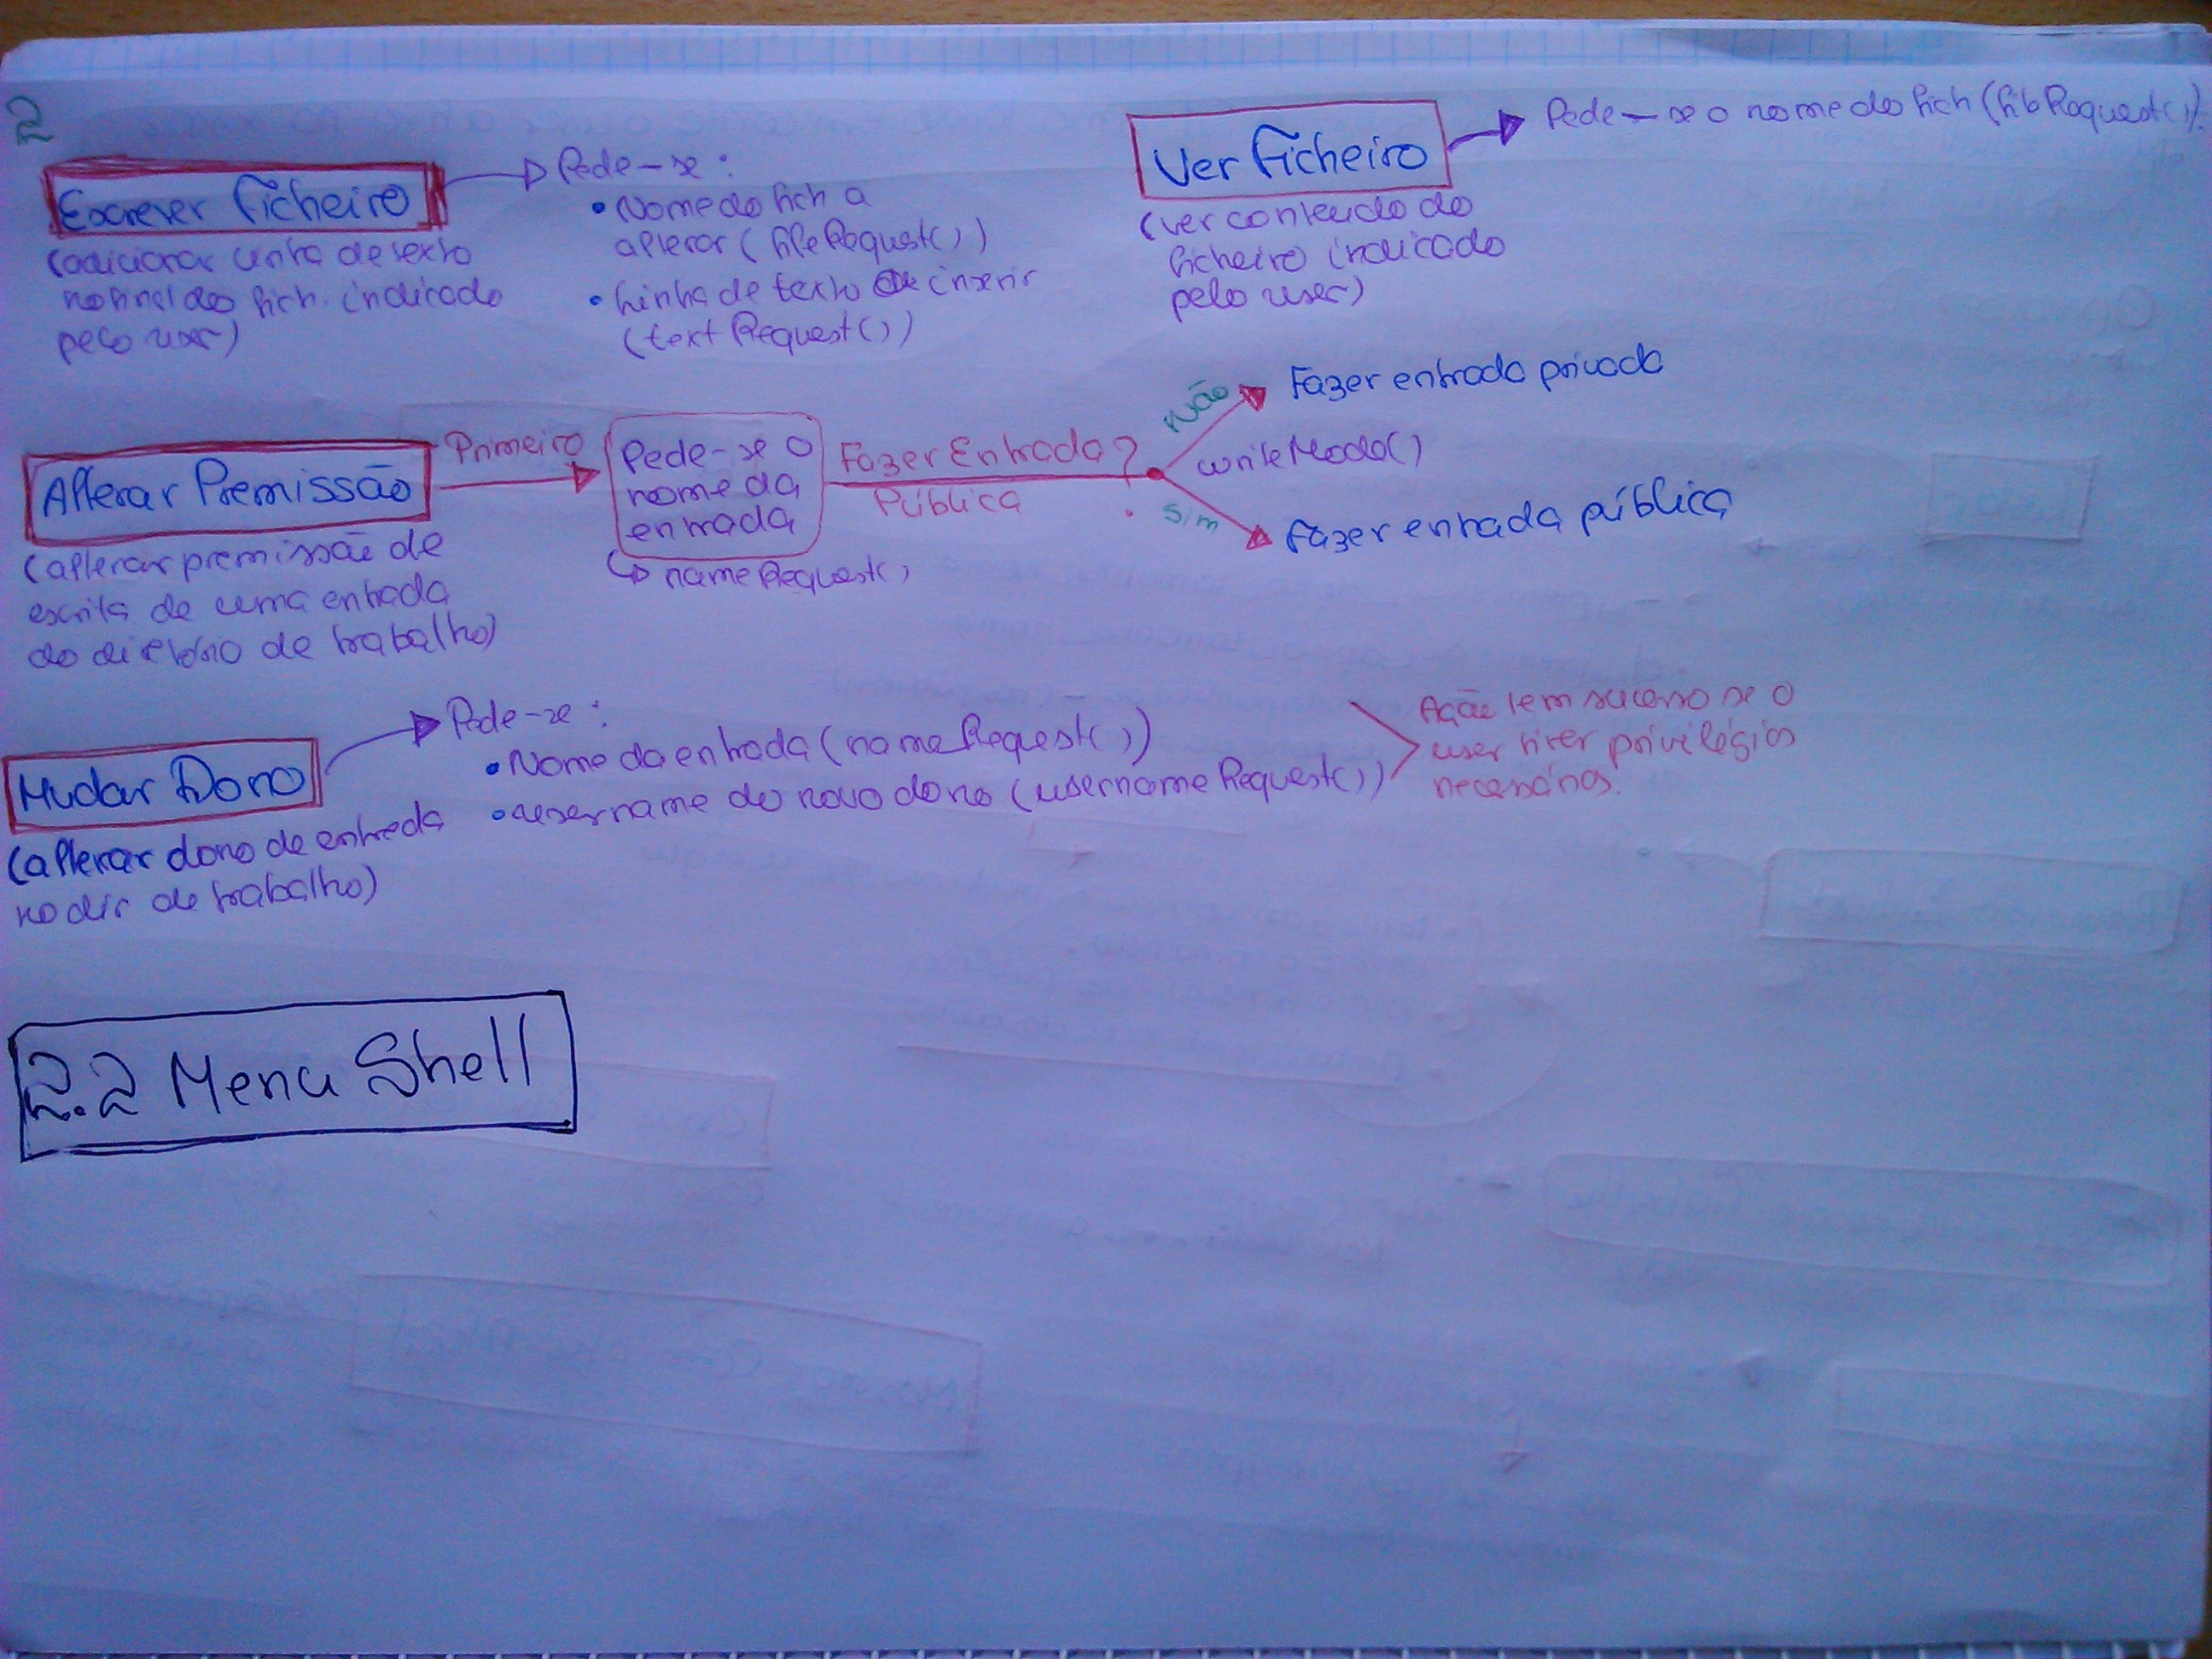 2
Escrever Ficheiro
(adicionar linha de texto
no final do fich. indicado
pelo user)
Pede-se:
• Nome do fich a
alterar (fileRequest())
• Linha de texto a inserir
(textRequest())
Ver Ficheiro
(ver conteudo do
ficheiro indicado
pelo user)
Pede-se o nome do fich (fileRequest())
Alterar Premissão
(alterar premissão de
escrita de uma entrada
do diretório de trabalho)
Primeiro
Pede-se o
nome da
entrada
↳ nameRequest()
Fazer Entrada?
Pública
Não
Fazer entrada privada
writeMode()
Sim
Fazer entrada pública
Mudar Dono
(alterar dono de entrada
no dir de trabalho)
Pede-se:
• Nome da entrada (nameRequest())
• username do novo dono (usernameRequest())
Ação tem sucesso se o
user tiver privilégios
necessários.
2.2 Menu Shell